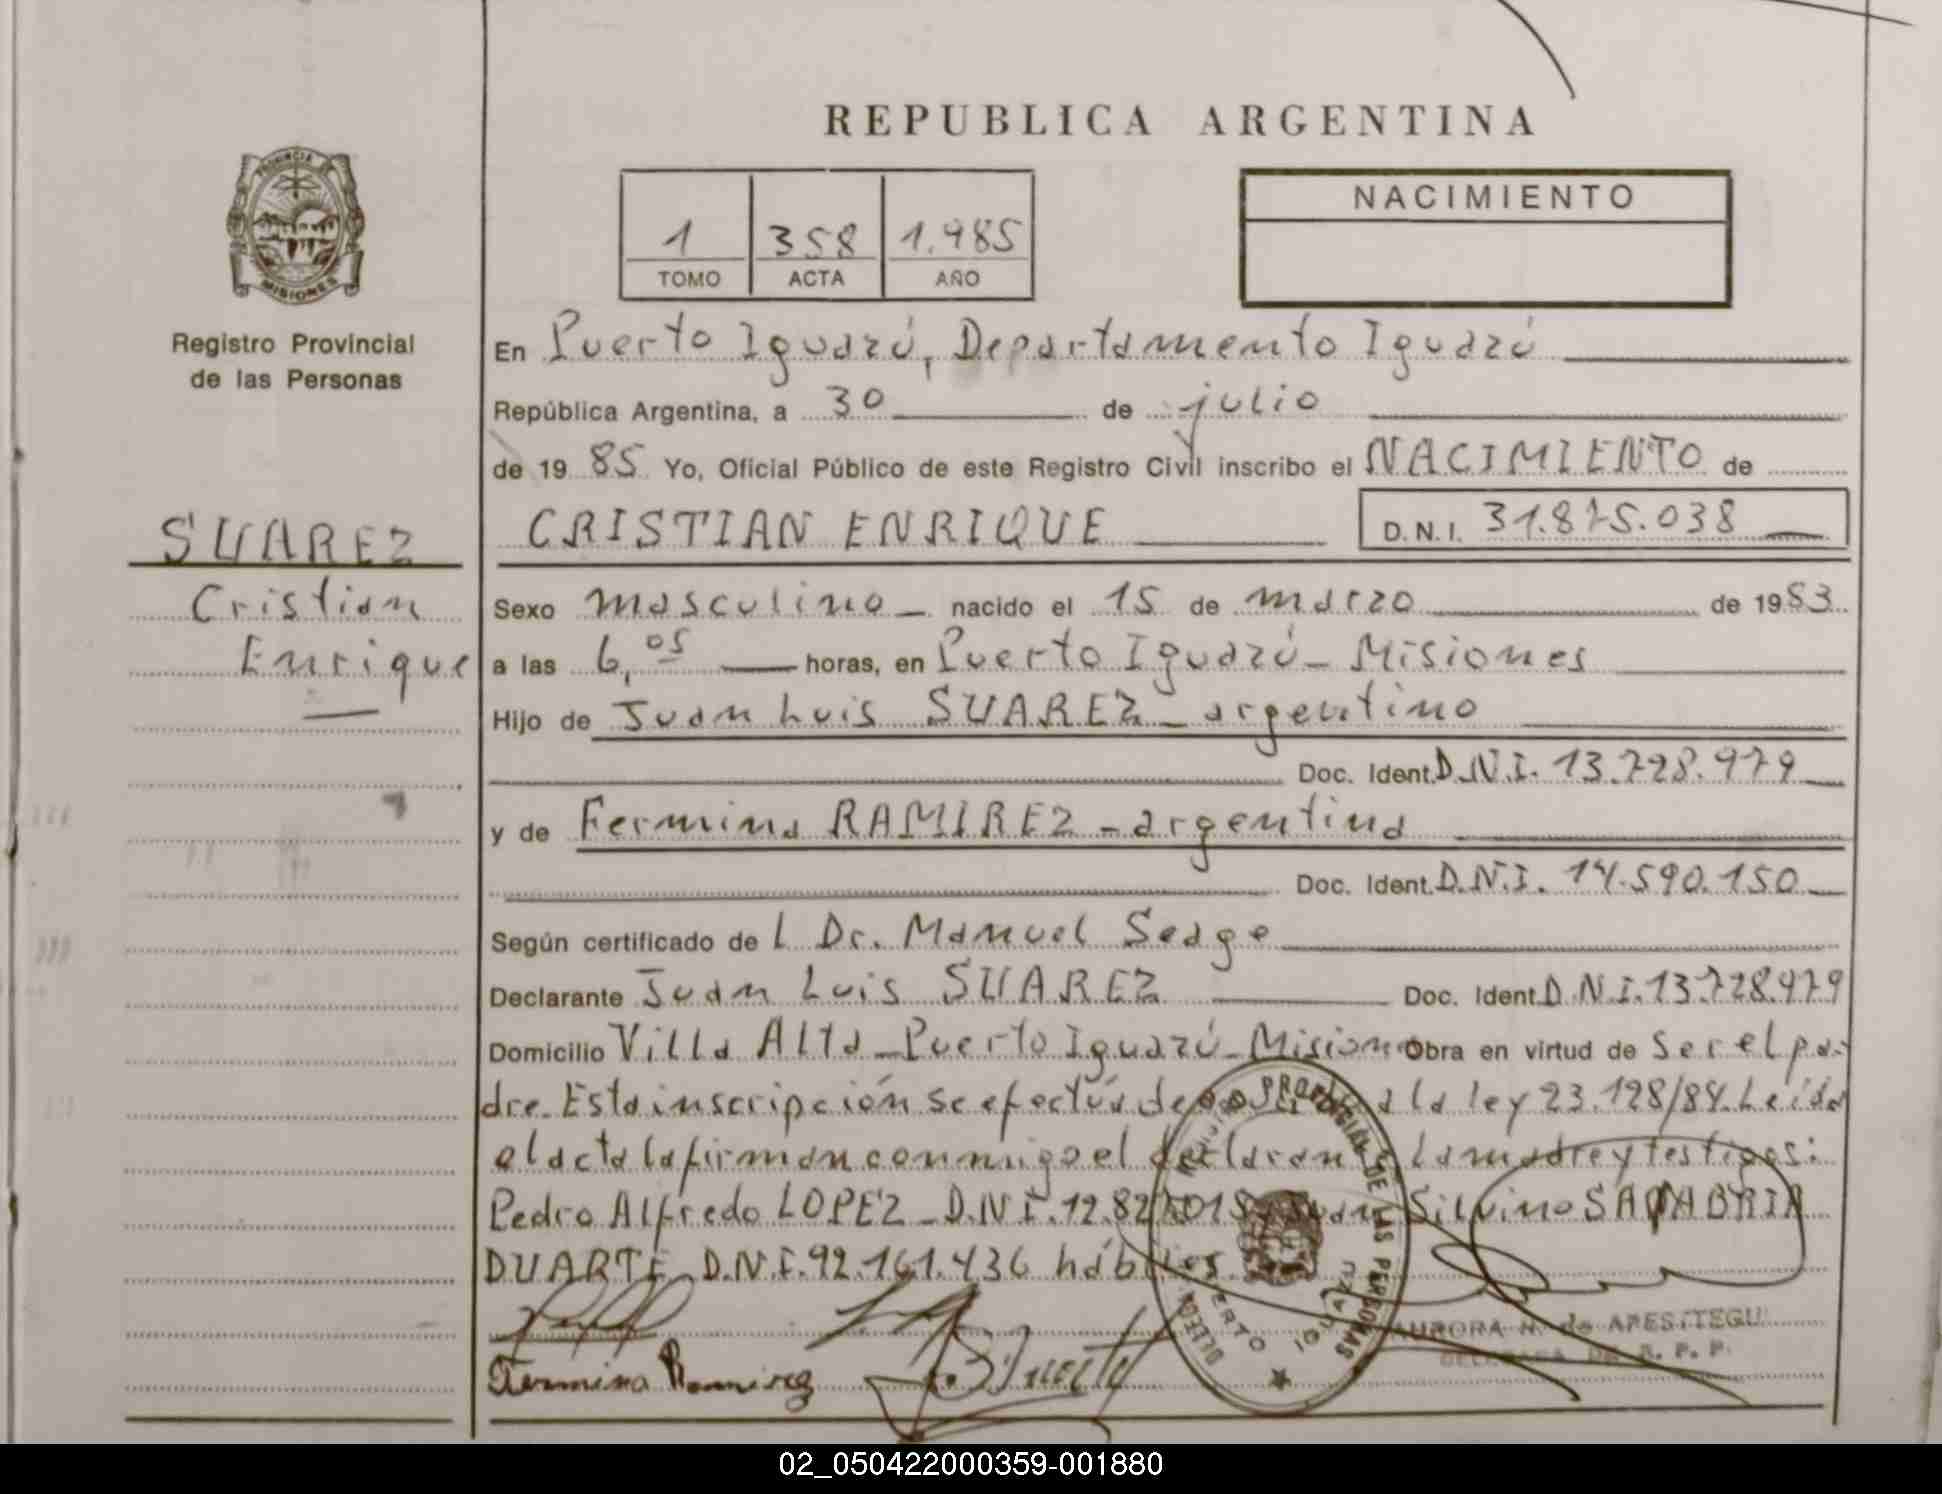 REPUBLICA ARGENTINA
PROVINCIA DE
MISIONES
Registro Provincial
de las Personas
1 358 1.985
TOMO ACTA AÑO
NACIMIENTO
En Puerto Iguazú, Departamento Iguazú
República Argentina, a 30 de julio
de 19 85 Yo, Oficial Público de este Registro Civil inscribo el NACIMIENTO de
SUAREZ
Cristian
Enrique
CRISTIAN ENRIQUE D.N.I. 31.875.038
Sexo masculino nacido el 15 de marzo de 1983
a las 6,05 horas, en Puerto Iguazú - Misiones
Hijo de Juan Luis SUAREZ - argentino
Doc. Ident. D.N.I. 13.728.979
y de Fermina RAMIREZ - argentina
Doc. Ident. D.N.I. 14.590.150
Según certificado de l Dr. Manuel Seage
Declarante Juan Luis SUAREZ Doc. Ident. D.N.I. 13.728.979
Domicilio Villa Alta - Puerto Iguazú - Mision Obra en virtud de ser el pa-
dre. Esta inscripción se efectúa de a la ley 23.128/84. Leída
el acta la firman conmigo el declarante La madre y testigos:
Pedro Alfredo LOPEZ - D.N.I. 12.82 015 y Juan Silvino SANABRIA
DUARTE D.N.I. 92.161.436 hábiles.
Fermina Ramirez
PROVINCIAL DE LAS PERSONAS
PUERTO IGUAZU
AURORA N. de APESITEGUI
DELEGADA DE R. P. P.
02_050422000359-001880